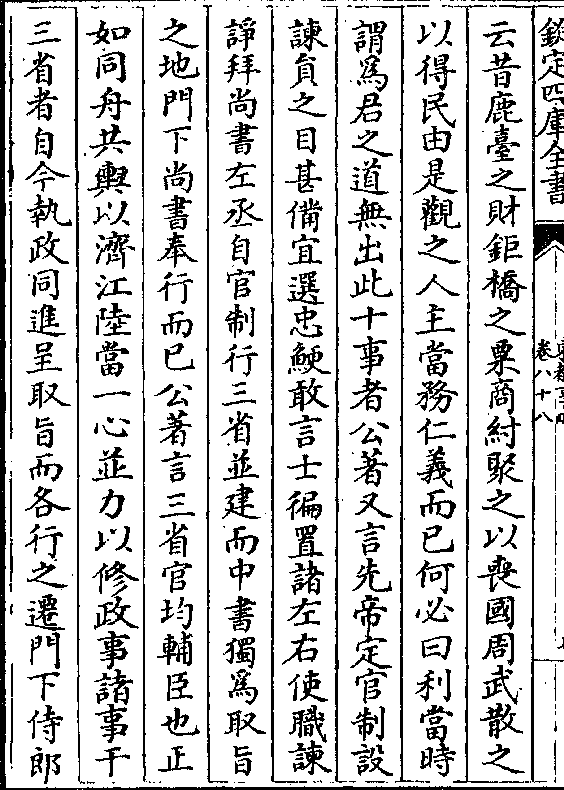 欽定四庫全書
卷八十八
云昔鹿臺之財鉅橋之粟商紂聚之以喪國周武散之
以得民由是觀之人主當務仁義而已何必曰利當時
謂爲君之道無出此十事者公著又言先帝定官制設
諫貟之目甚備宜選忠鯁敢言士徧置諸左右使職諫
諍拜尚書左丞自官制行三省並建而中書獨爲取旨
之地門下尚書奉行而已公著言三省官均輔臣也正
如同舟共輿以濟江陸當一心並力以修政事諸事干
三省者自今執政同進呈取旨而各行之遷門下侍郎